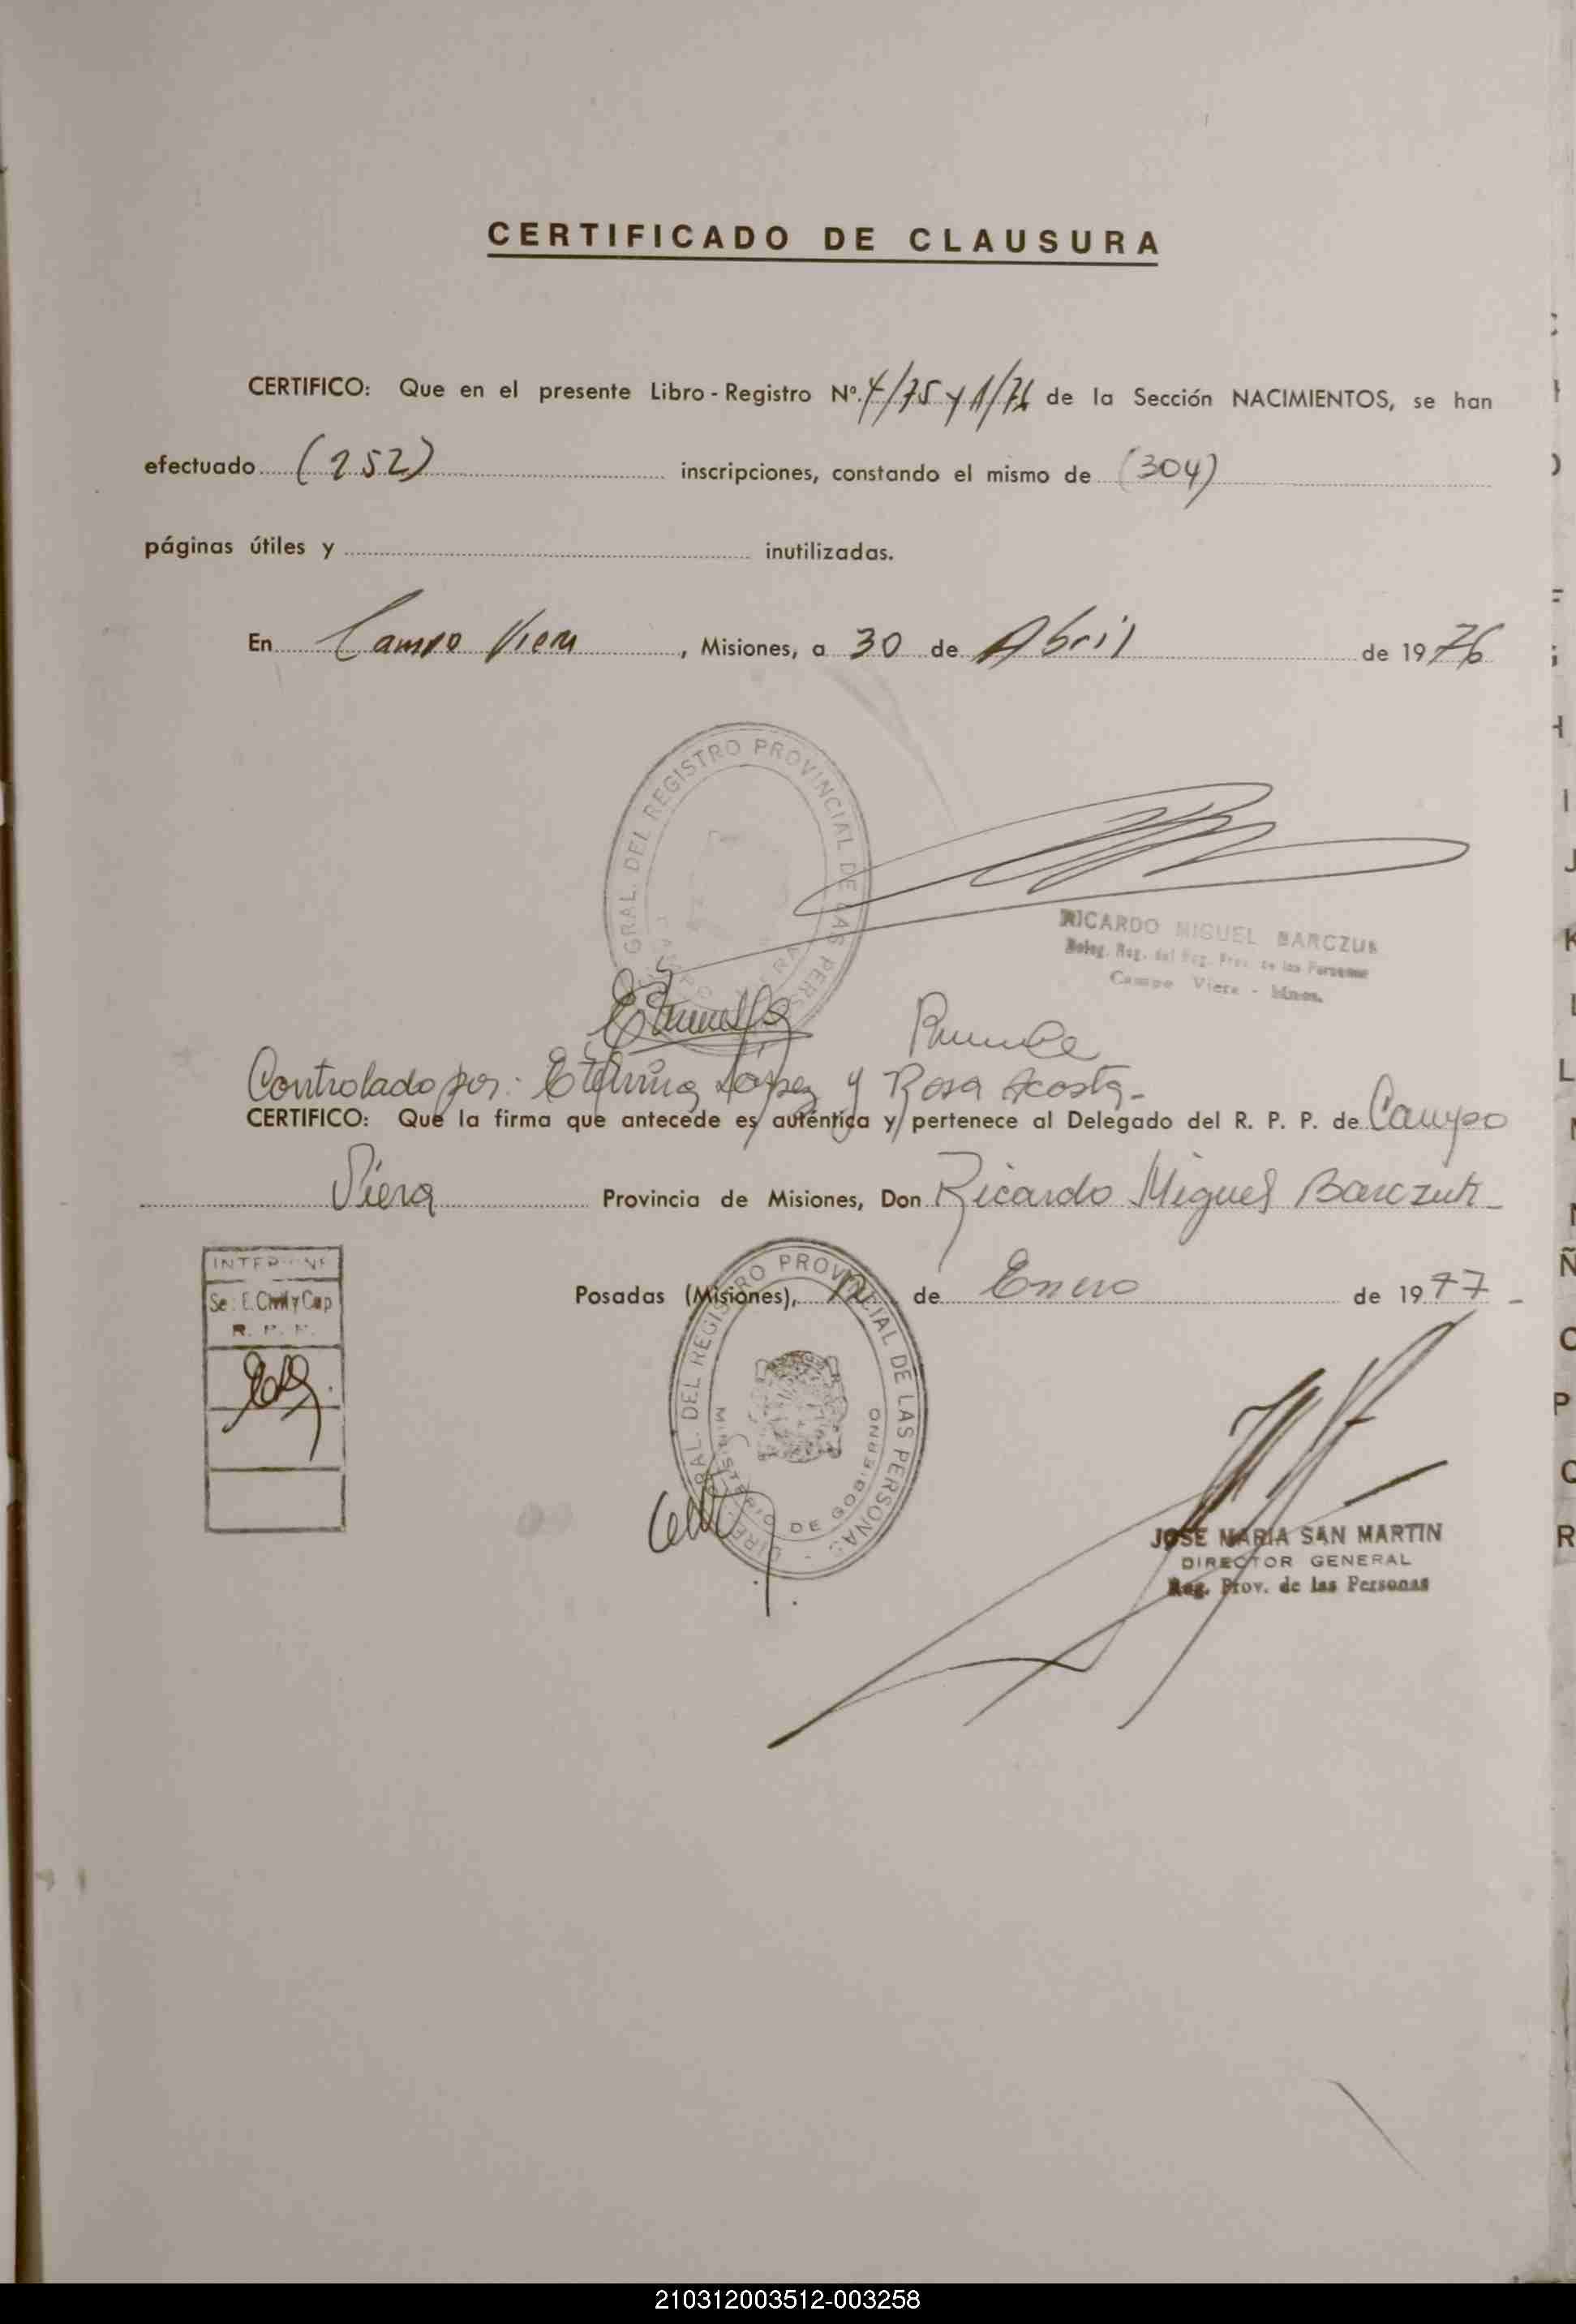 CERTIFICADO DE CLAUSURA
CERTIFICO: Que en el presente Libro - Registro Nº. 4/75 y 1/76 de la Sección NACIMIENTOS, se han
efectuado (252) inscripciones, constando el mismo de (304)
páginas útiles y inutilizadas.
En Campo Viera, Misiones, a 30 de Abril de 1976
GRAL. DEL REGISTRO PROVINCIAL DE LAS PERS
RICARDO MIGUEL BARCZUK
Deleg. Reg. del Reg. Prov. de las Personas
Campo Viera - Mnes.
Controlado por: Etelvina López y Rosa Acosta-
CERTIFICO: Que la firma que antecede es auténtica y pertenece al Delegado del R. P. P. de Campo
Viera Provincia de Misiones, Don Ricardo Miguel Barczuk
Posadas (Misiones), 12 de Enero de 1977
Sec. E. Civil y Cap
R. P. P.
DIREC. GRAL. DEL REGISTRO PROVINCIAL DE LAS PERSONAS
MINISTERIO DE GOBIERNO
JOSE MARIA SAN MARTIN
DIRECTOR GENERAL
Reg. Prov. de las Personas
H
I
J
K
L
L
Ñ
O
P
Q
R
210312003512-003258